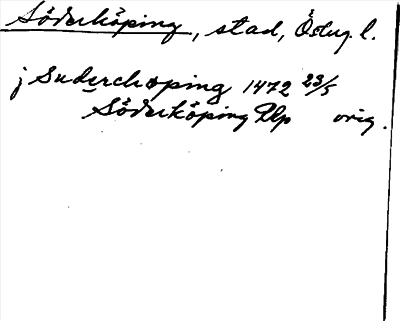 Söderköping, stad, Östug. l.
j Suderchoping 1472 23/5
Söderköping Dlp orig.